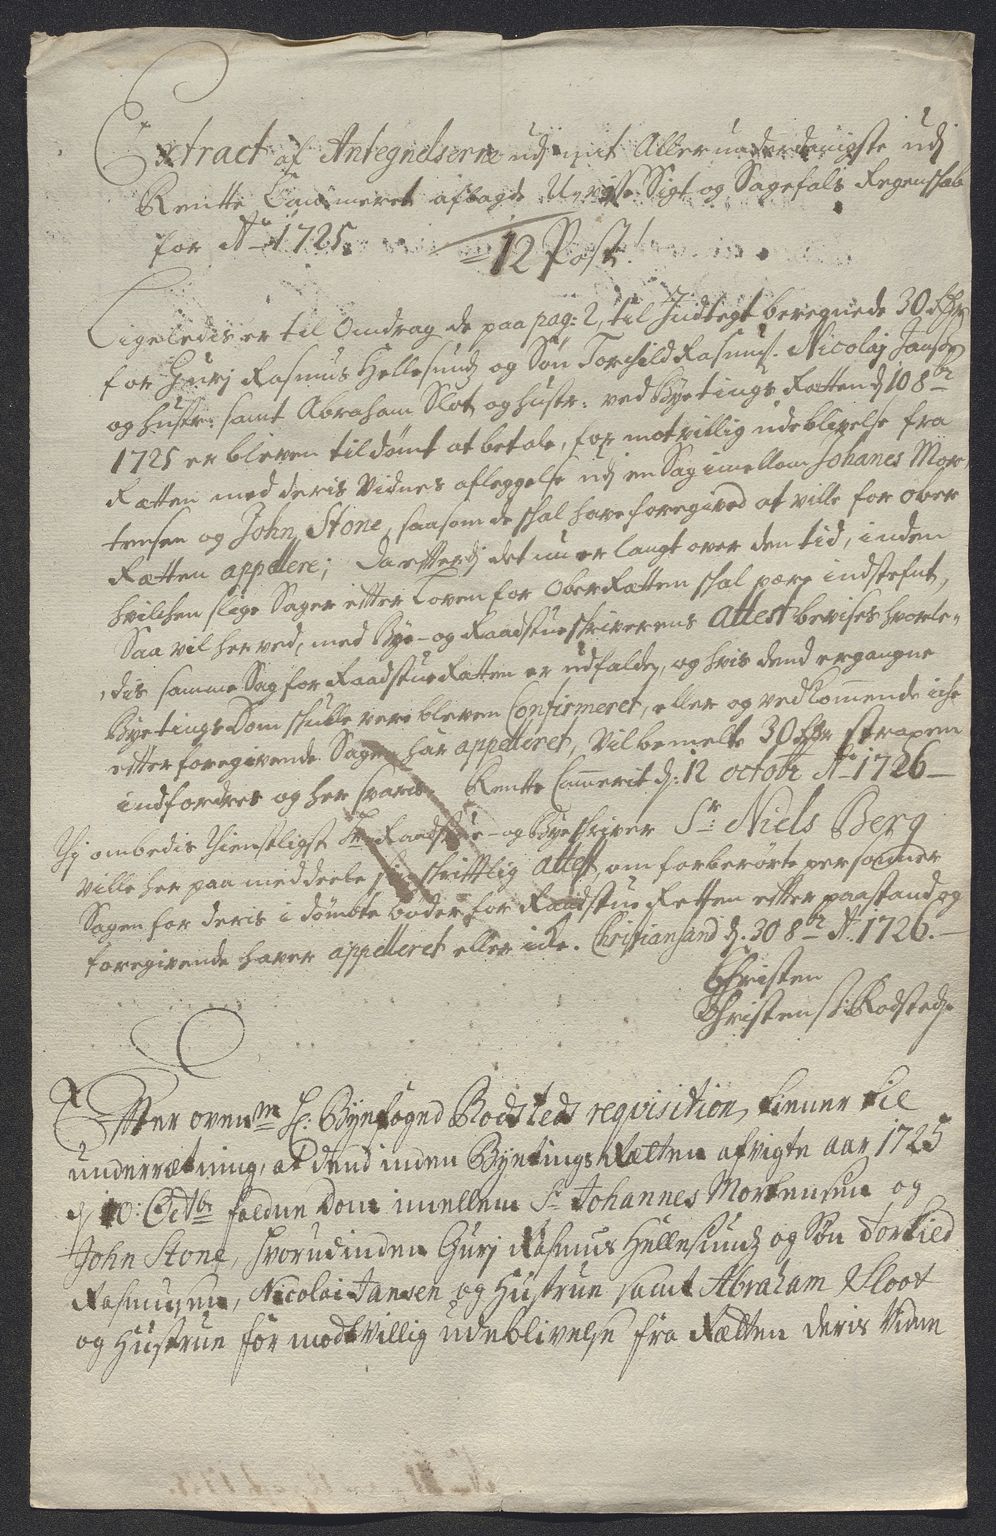 Extract af Antegnelserne udj mit Allerunderdanigste udj
Rentte Cammeret aflagde Uvisse Sigt og Sagefals Regenskab
for Ao 1725.
12 Post!
Ligeledis er til Omdrag de paa pag: 2, til Indtegt beregnede 30 rdr
for Gurj Rasmus Hellesund og Søn Torchild Rasmus. Nicolaj Jansen
og hustr: samt Abraham Slot og hustr: ved Byetings Retten d 10 8br
1725 er bleven tildømt at betale, for motvillig udeblivelse fra
Retten med deris Vidnes afleggelse udj en Sag imellem Johanes Mor-
tensen og John Stone, saasom de skal have foregived at ville for ober
Retten appellere; Da efterdj det nu er langt over den tid, inden
hvilchen slige Sager efter Loven for Ober Retten skal være indstefnt,
Saa vil herved, med Bye- og Raadstueskriverens attest bevises hvorle-
dis samme Sag for Raadstue Retten er udfalden, og hvis dend ergangne
Byetings Dom skulle vere bleven Confirmeret, eller og vedkommende iche
efter foregivende Sagen har appelleret, Vil bemelte 30 rdr straxen
indfordres og her svaris. Rentte Cammerit d: 12 octobr Ao 1726
Thj ombedis tienstligst Hr Raadstue- og Byeskriver Sr Niels Berg
ville her paa meddeele sin skrifttlig attest, om forberørte personer
Sagen for deris idømbte bøder for Raadstue Retten efter paastand og
foregivende haver appelleret eller iche. Christiansand d. 30 8br Ao 1726.
Christen
Christens: Rodsted.
Efter ovenm H: Byefoged Rodsteds reqvisition, tiener til
underretning, at dend inden Byetings Retten afvigte aar 1725
d 10: Octbr faldne Dom imellem Sr Johannes Mortensen og
John Stone, hvorudinden Gurj Rasmus Hellesund og Søn Torkied
Rasmusen, Nicolai Jansen og Hustrue samt Abraham Sloot
og Hustrue for modtvillig udeblivelse fra Retten deris Vidne